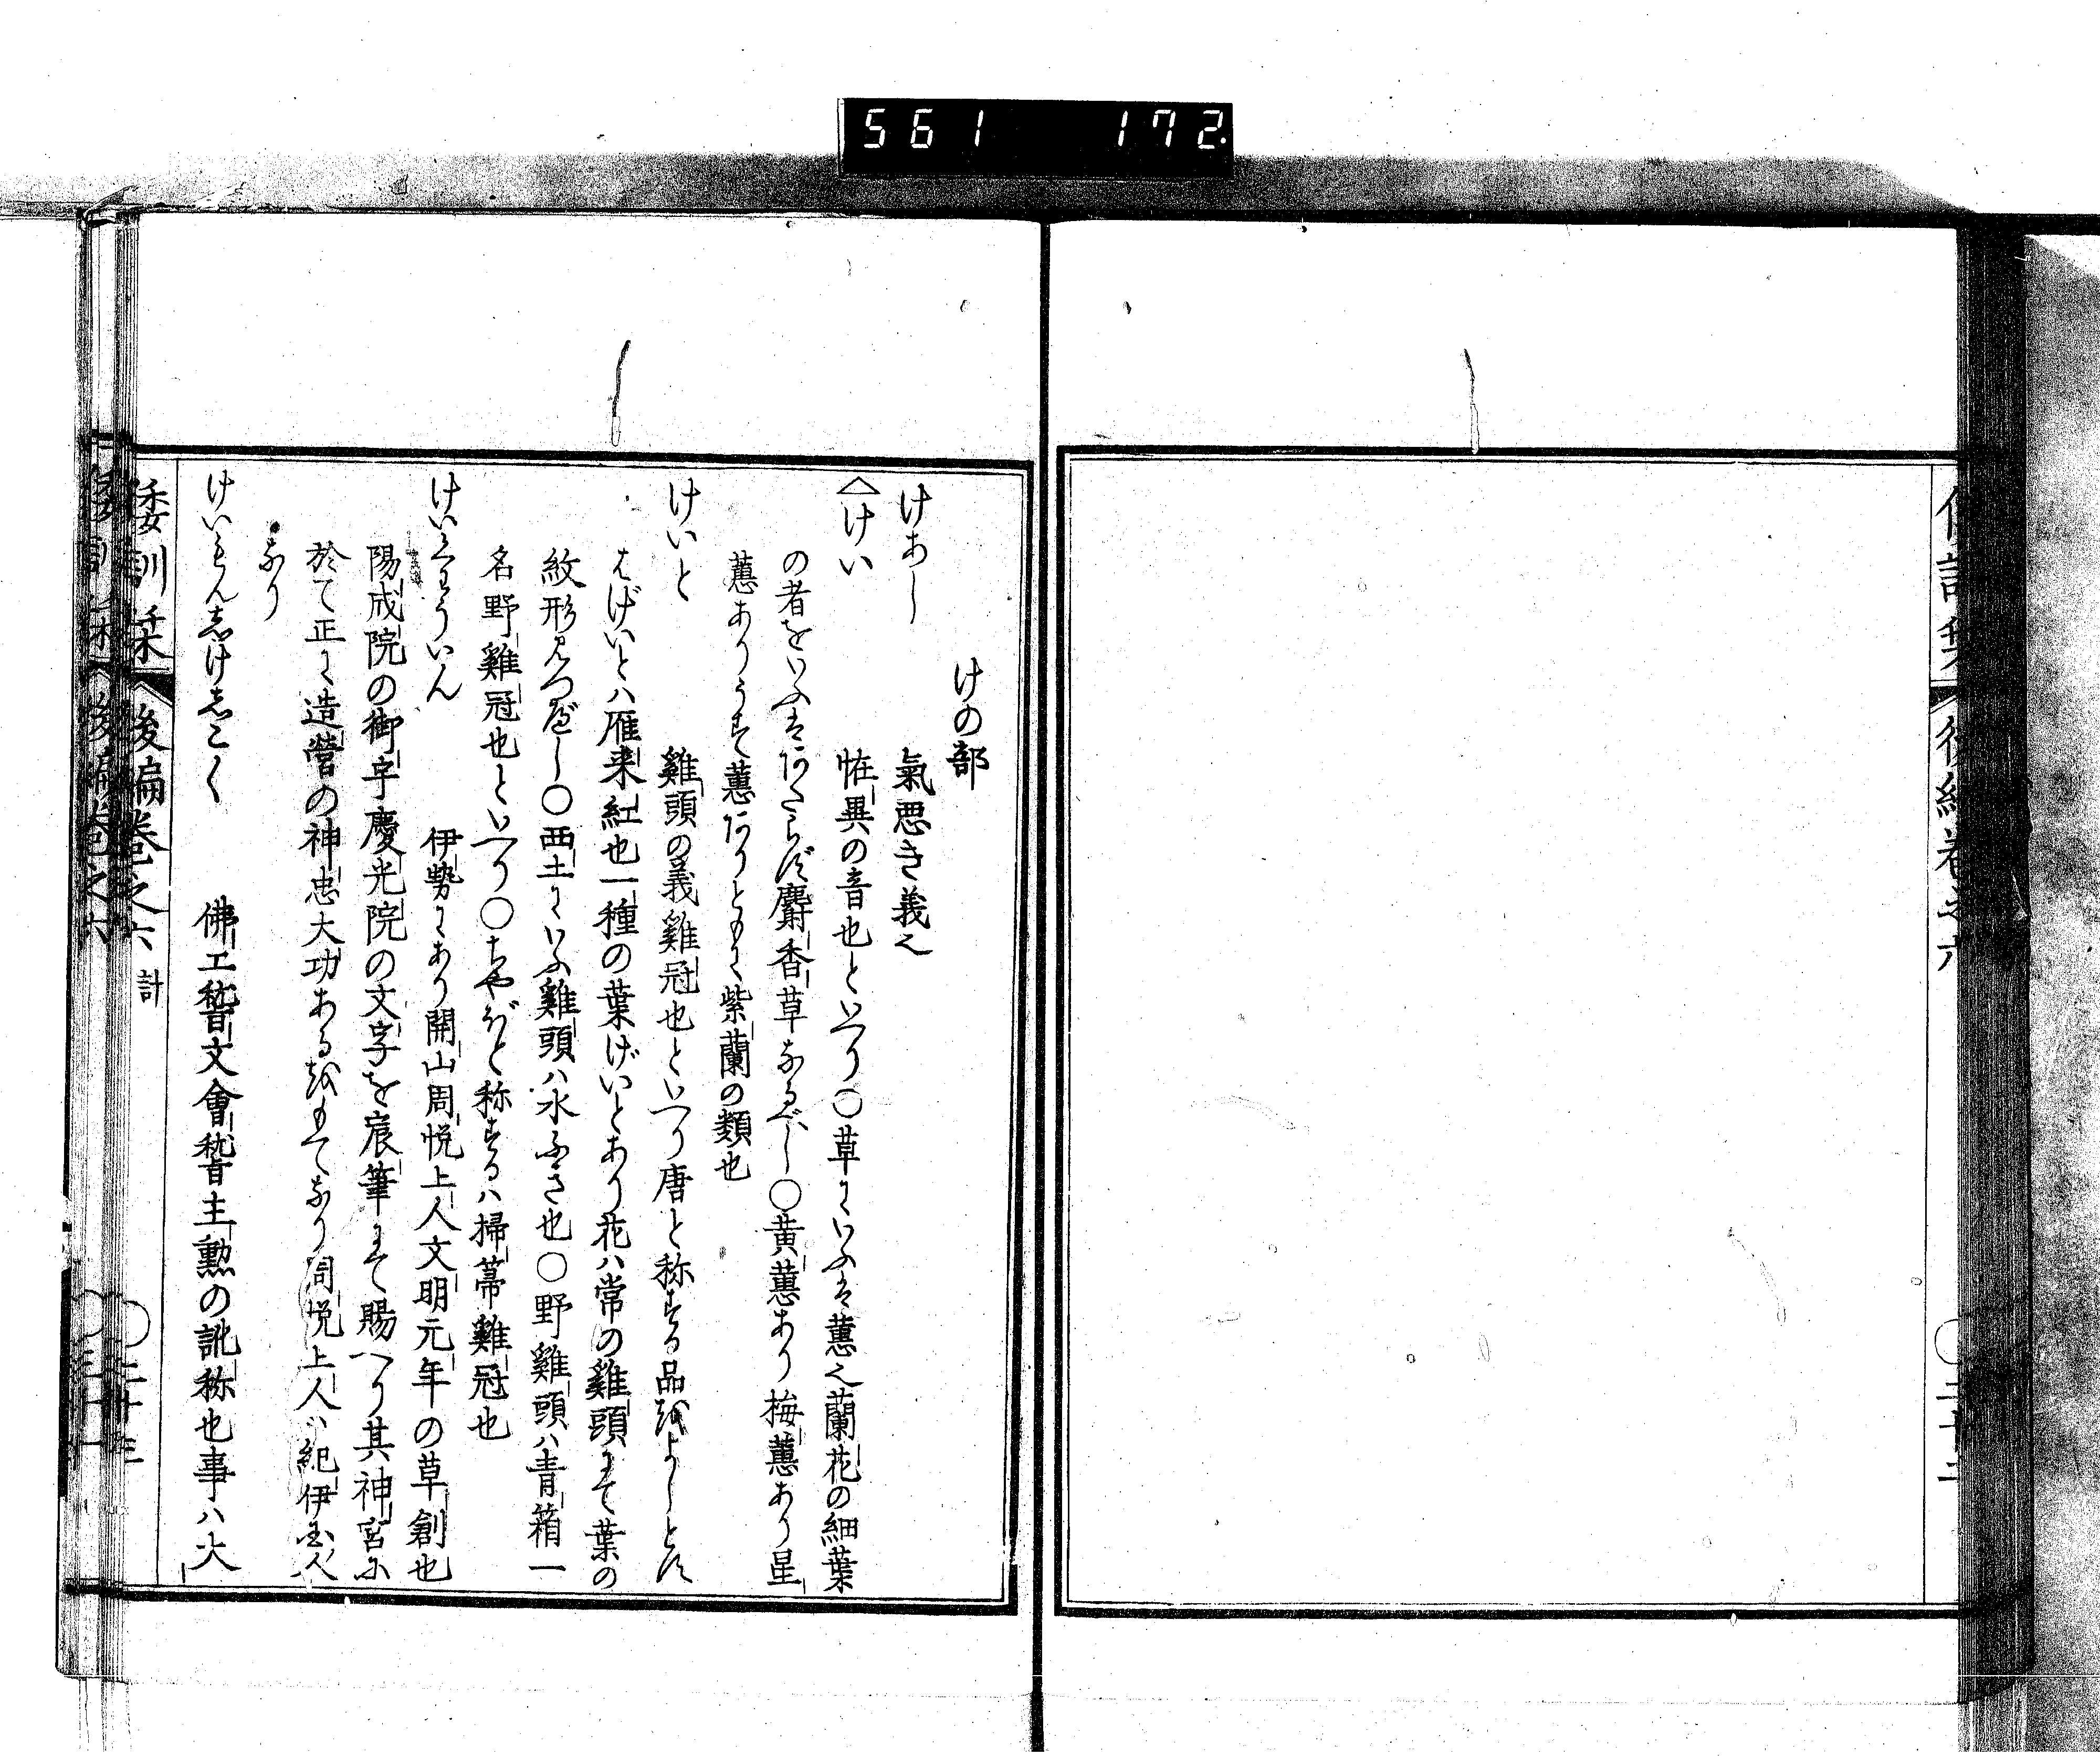 561 172.
けの部
けあし 氣悪き義也
〈けい 恠異の音也といへり〇草にいふは蕙也蘭花の細葉
の者をいふはあたらず麝香草なるべし〇黄蕙あり梅蕙あり星
蕙ありうすで蕙ありともに紫蘭の類也
けいと 雞頭の義雞冠也といへり唐と称する品をよしとす
はげいとハ雁来紅也一種の葉げいとあり花ハ常の雞頭にて葉の
紋形見つべし〇西土にいふ雞頭ハ水ふき也〇野雞頭ハ青葙一
名野雞冠也といへり〇ちやぼと称するハ掃箒雞冠也
けいくわういん 伊勢にあり開山周悦上人文明元年の草創也
陽成院の御宇慶光院の文字を宸筆にて賜へり其神宮に
於て正に造營の神忠大功あるをもてなり周悦上人ハ紀伊国人
なり
けいもんしけしこく 佛工稽文會稽主勲の訛称也事ハ大
倭訓栞 後編巻之六 計 〇二十三